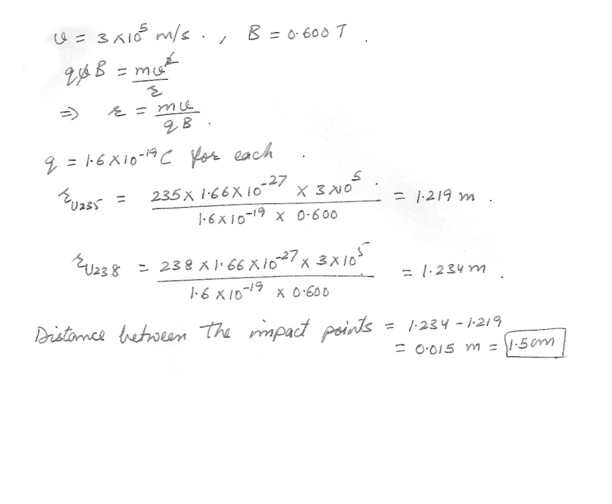 v = 3 x10^5 m/s. , B = 0.600 T.
qvB = mv^2/r
⇒ r = mv/qB.
q = 1.6 X10^-19 C for each.
r_U235 = 235 x 1.66 X 10^-27 x 3 x10^5 / 1.6 x 10^-19 x 0.600 = 1.219 m.
r_U238 = 238 x 1.66 X 10^-27 x 3 x10^5 / 1.6 x 10^-19 x 0.600 = 1.234 m.
Distance between the impact points = 1.234 - 1.219
= 0.015 m = 1.5 cm